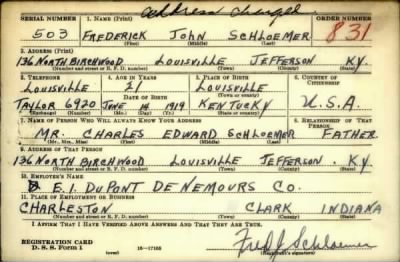 address changed
SERIAL NUMBER 1. NAME (Print) ORDER NUMBER
503 FREDERICK JOHN SCHLOEMER 831
(First) (Middle) (Last)
2. ADDRESS (Print)
136 NORTH BIRCHWOOD LOUISVILLE JEFFERSON KY.
(Number and street or R. F. D. number) (Town) (County) (State)
3. TELEPHONE 4. AGE IN YEARS 5. PLACE OF BIRTH 6. COUNTRY OF CITIZENSHIP
LOUISVILLE 21 LOUISVILLE
DATE OF BIRTH (Town or county)
TAYLOR 6920 JUNE 14 1919 KENTUCKY U.S.A.
(Exchange) (Number) (Mo.) (Day) (Yr.) (State or country)
7. NAME OF PERSON WHO WILL ALWAYS KNOW YOUR ADDRESS 8. RELATIONSHIP OF THAT PERSON
MR. CHARLES EDWARD SCHLOEMER FATHER
(Mr., Mrs., Miss) (First) (Middle) (Last)
9. ADDRESS OF THAT PERSON
136 NORTH BIRCHWOOD LOUISVILLE JEFFERSON KY
(Number and street or R. F. D. number) (Town) (County) (State)
10. EMPLOYER'S NAME
E.I. DUPONT DE NEMOURS CO.
11. PLACE OF EMPLOYMENT OR BUSINESS
CHARLESTON CLARK INDIANA
(Number and street or R. F. D. number) (Town) (County) (State)
I AFFIRM THAT I HAVE VERIFIED ABOVE ANSWERS AND THAT THEY ARE TRUE.
REGISTRATION CARD
D. S. S. FORM 1 (over) 16-17105 Fred J Schloemer
(Registrant's signature)